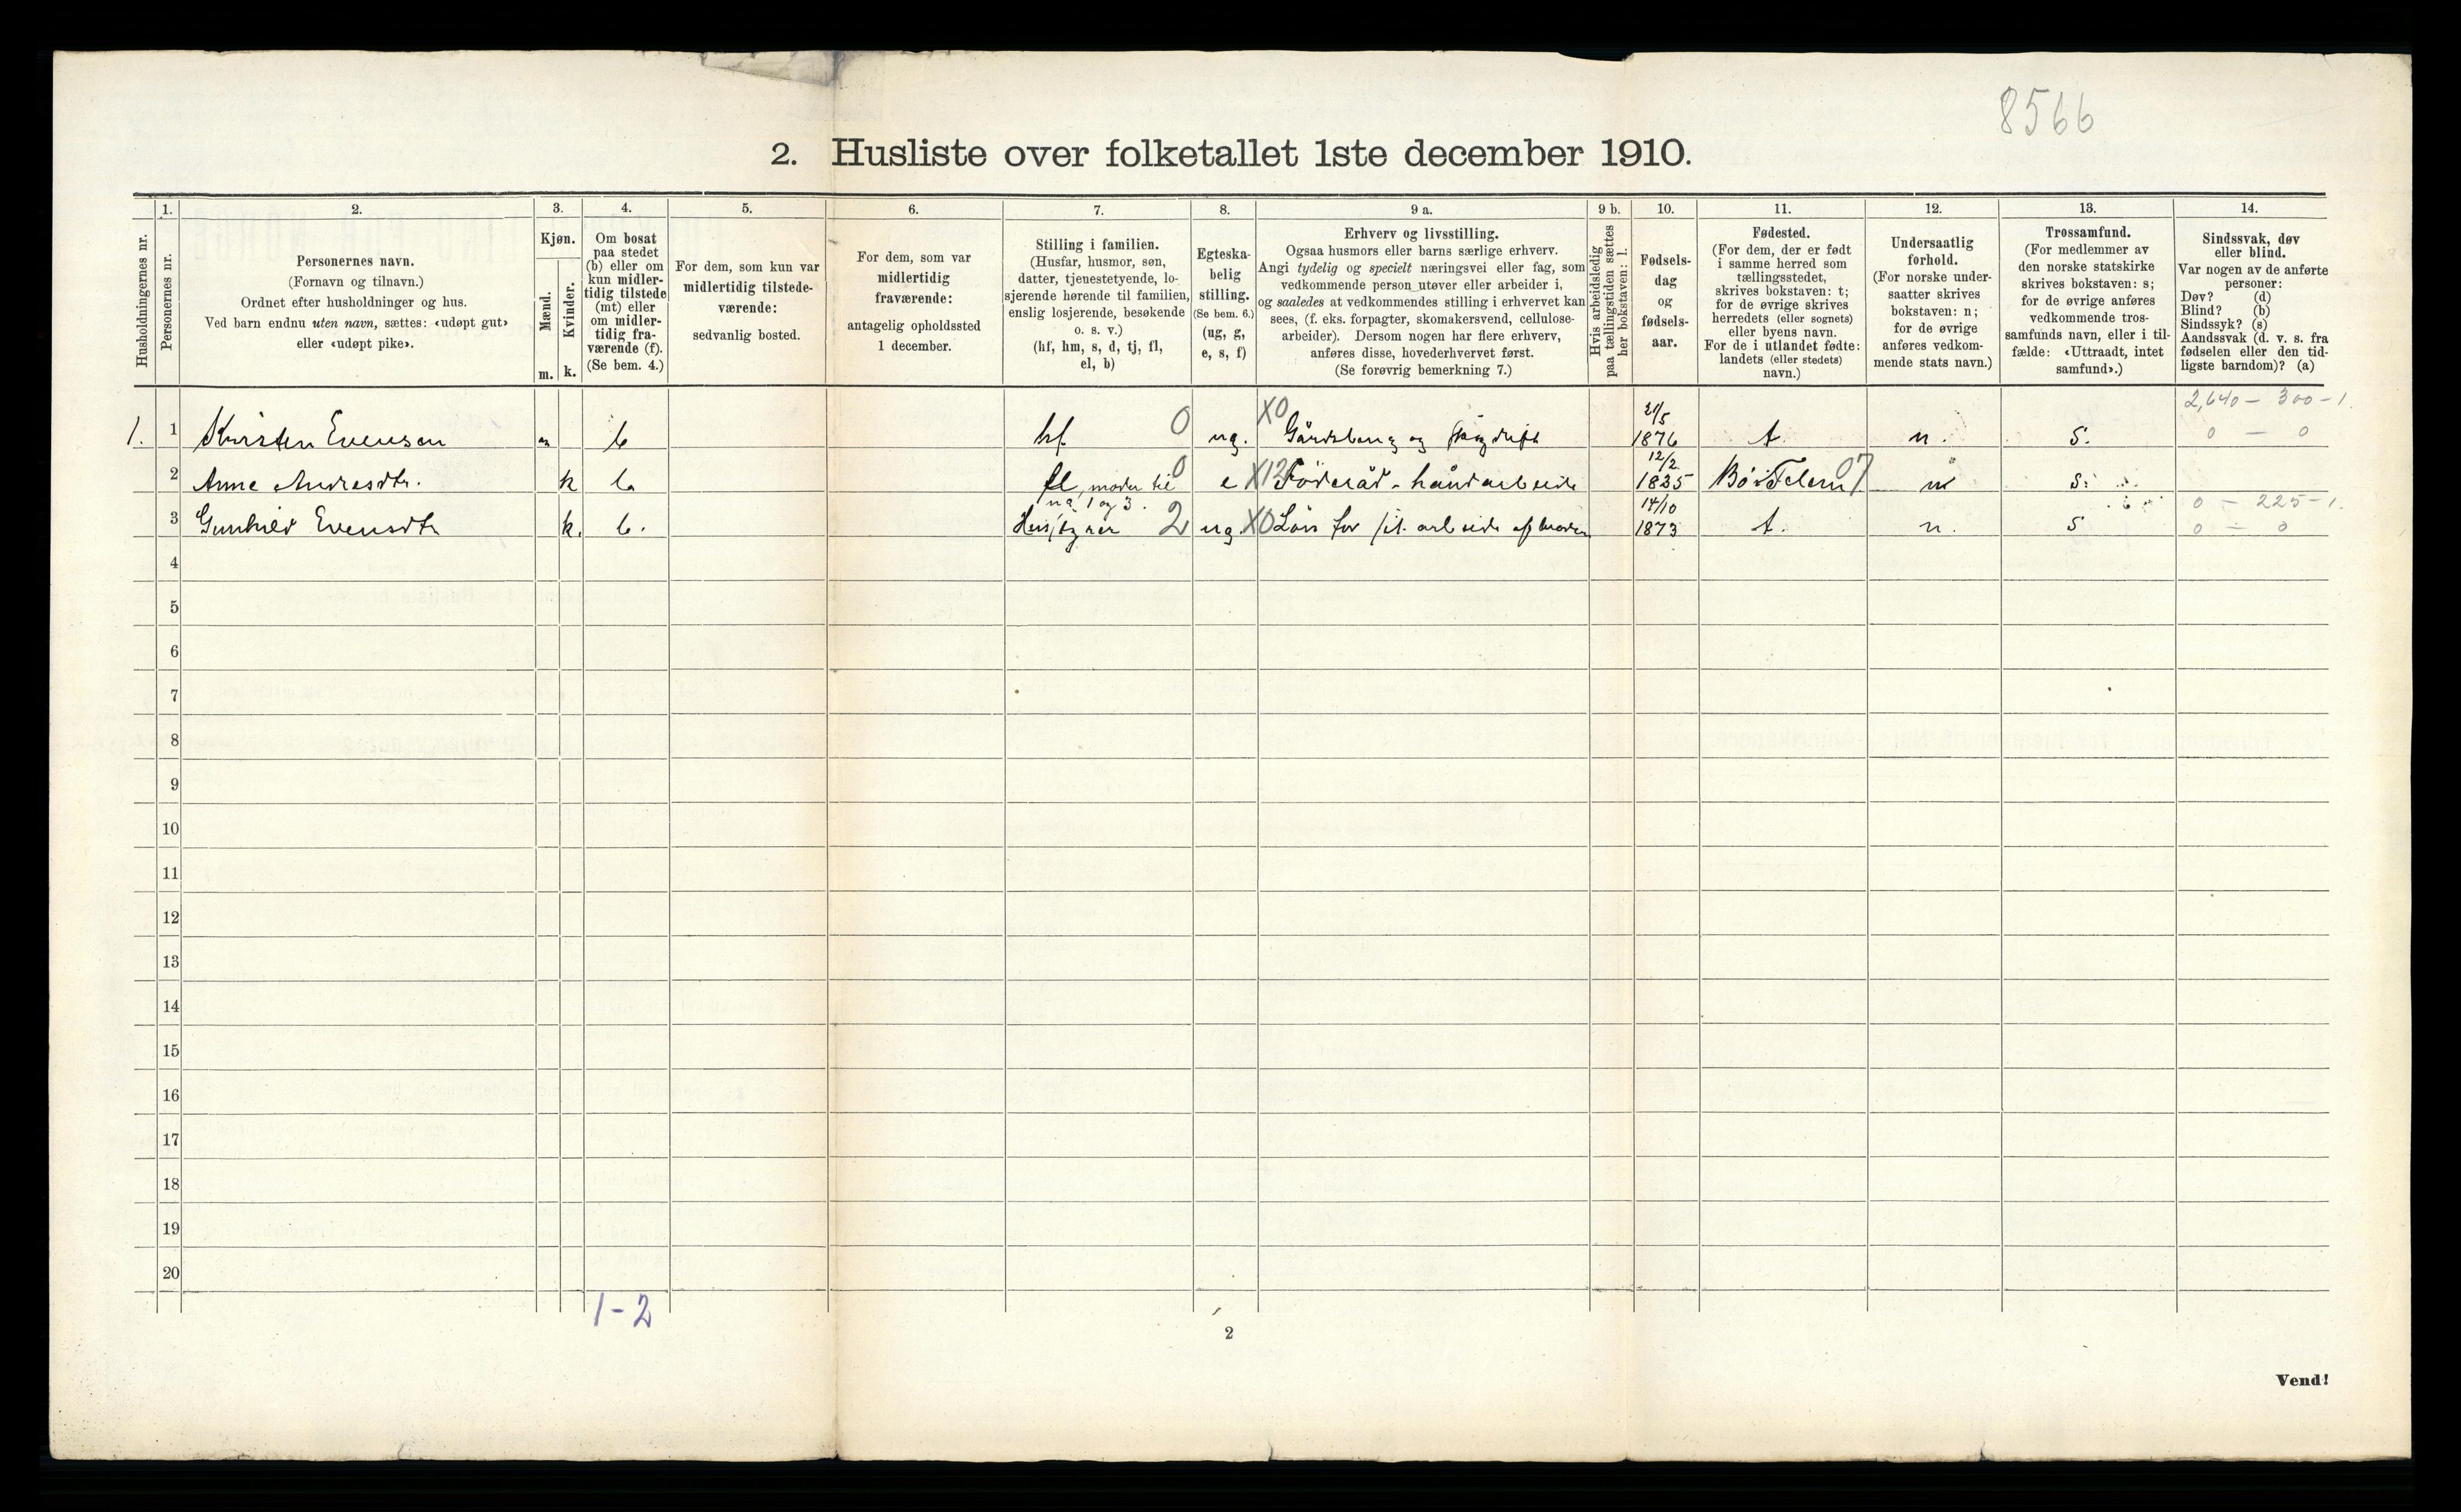 8566
2. Husliste over folketallet 1ste december 1910.
Husholdningernes nr.
1.
Personernes nr.
2.
Personernes navn.
(Fornavn og tilnavn.)
Ordnet efter husholdninger og hus.
Ved barn endnu uten navn, sættes: «udøpt gut»
eller «udøpt pike».
3.
Kjøn.
Mænd.
Kvinder.
m. k.
4.
Om bosat
paa stedet
(b) eller om
kun midler-
tidig tilstede
(mt) eller
om midler-
tidig fra-
værende (f).
(Se bem. 4.)
5.
For dem, som kun var
midlertidig tilstede-
værende:
sedvanlig bosted.
6.
For dem, som var
midlertidig
fraværende:
antagelig opholdssted
1 december.
7.
Stilling i familien.
(Husfar, husmor, søn,
datter, tjenestetyende, lo-
sjerende hørende til familien,
enslig losjerende, besøkende
o. s. v.)
(hf, hm, s, d, tj, fl,
el, b)
8.
Egteska-
belig
stilling.
(Se bem. 6.)
(ug, g,
e, s, f)
9 a.
Erhverv og livsstilling.
Ogsaa husmors eller barns særlige erhverv.
Angi tydelig og specielt næringsvei eller fag, som
vedkommende person utøver eller arbeider i,
og saaledes at vedkommendes stilling i erhvervet kan
sees, (f. eks. forpagter, skomakersvend, cellulose-
arbeider). Dersom nogen har flere erhverv,
anføres disse, hovederhvervet først.
(Se forøvrig bemerkning 7.)
9 b.
Hvis arbeidsledig
paa tællingstiden sættes
her bokstaven: l.
10.
Fødsels-
dag
og
fødsels-
aar.
11.
Fødested.
(For dem, der er født
i samme herred som
tællingsstedet,
skrives bokstaven: t;
for de øvrige skrives
herredets (eller sognets)
eller byens navn.
For de i utlandet fødte:
landets (eller stedets)
navn.)
12.
Undersaatlig
forhold.
(For norske under-
saatter skrives
bokstaven: n;
for de øvrige
anføres vedkom-
mende stats navn.)
13.
Trossamfund.
(For medlemmer av
den norske statskirke
skrives bokstaven: s;
for de øvrige anføres
vedkommende tros-
samfunds navn, eller i til-
fælde: «Uttraadt, intet
samfund».)
14.
Sindssvak, døv
eller blind.
Var nogen av de anførte
personer:
Døv? (d)
Blind? (b)
Sindssyk? (s)
Aandssvak (d. v. s. fra
fødselen eller den tid-
ligste barndom)? (a)
2,640 – 300 – 1.
1. 1 Kirsten Evensen m b hf 0 ug. X0 Gårdsbrug og 21/5 1876 t. n. s. 0 – 0
2 Anne Andresdtr. k b fl, moder til na 1 og 3. 0 e X12 Föderåd - håndarbeide 12/2 1835 Bö i Telem 07 n s.
0 – 225 – 1.
3 Gunhild Evensdtr k. b. Husstyrer 2 ug X0 Lön for sit arbeide af broder 14/10 1873 t. n. s 0 – 0
4
5
6
7
8
9
10
11
12
13
14
15
16
17
18
19
20
1-2
2
Vend!